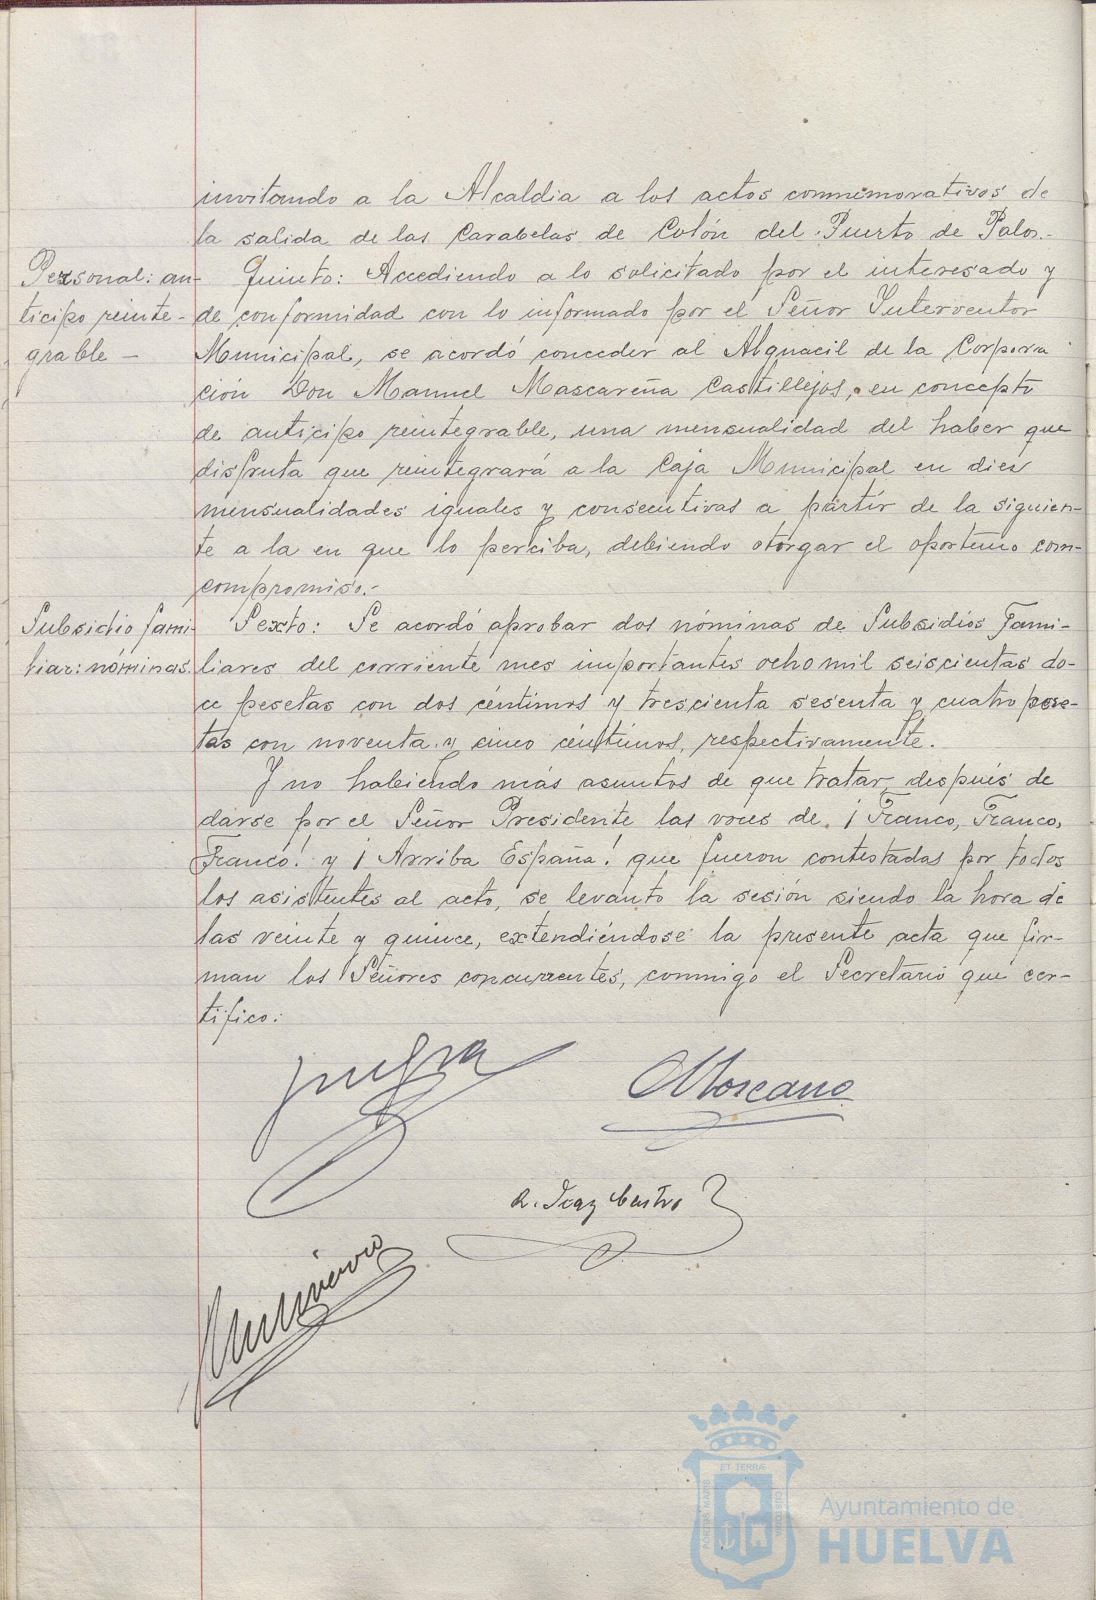 invitando a la Alcaldia a los actos conmemorativos de
la salida de las Carabelas de Colón del Puerto de Palos.-
Personal: an-
ticipo reinte-
grable -
Quinto: Accediendo a lo solicitado por el interesado y
de conformidad con lo informado por el Señor Interventor
Municipal, se acordó conceder al Alguacil de la Corpora
ción Don Manuel Mascareña Castillejos, en concepto
de anticipo reintegrable, una mensualidad del haber que
disfruta que reintegrará a la Caja Municipal en diez
mensualidades iguales y consecutivas a partir de la siguien-
te a la en que lo perciba, debiendo otorgar el oportuno com-
compromiso.-
Subsidio fami-
liar: nóminas.
Sexto: Se acordó aprobar dos nóminas de Subsidios Fami-
liares del corriente mes importantes ocho mil seiscientas do-
ce pesetas con dos céntimos y trescienta sesenta y cuatro pese-
tas con noventa y cinco céntimos, respectivamente.
Y no habiendo más asuntos de que tratar, después de
darse por el Señor Presidente las voces de ¡Franco, Franco,
Franco! y ¡Arriba España! que fueron contestadas por todos
los asistentes al acto, se levanto la sesión siendo la hora de
las veinte y quince, extendiéndose la presente acta que fir-
man los Señores concurrentes, conmigo el Secretario que cer-
tifico:
R. Diaz Castro
PORTUS MARIS
ET TERRÆ
CUSTODIA
Ayuntamiento de
HUELVA